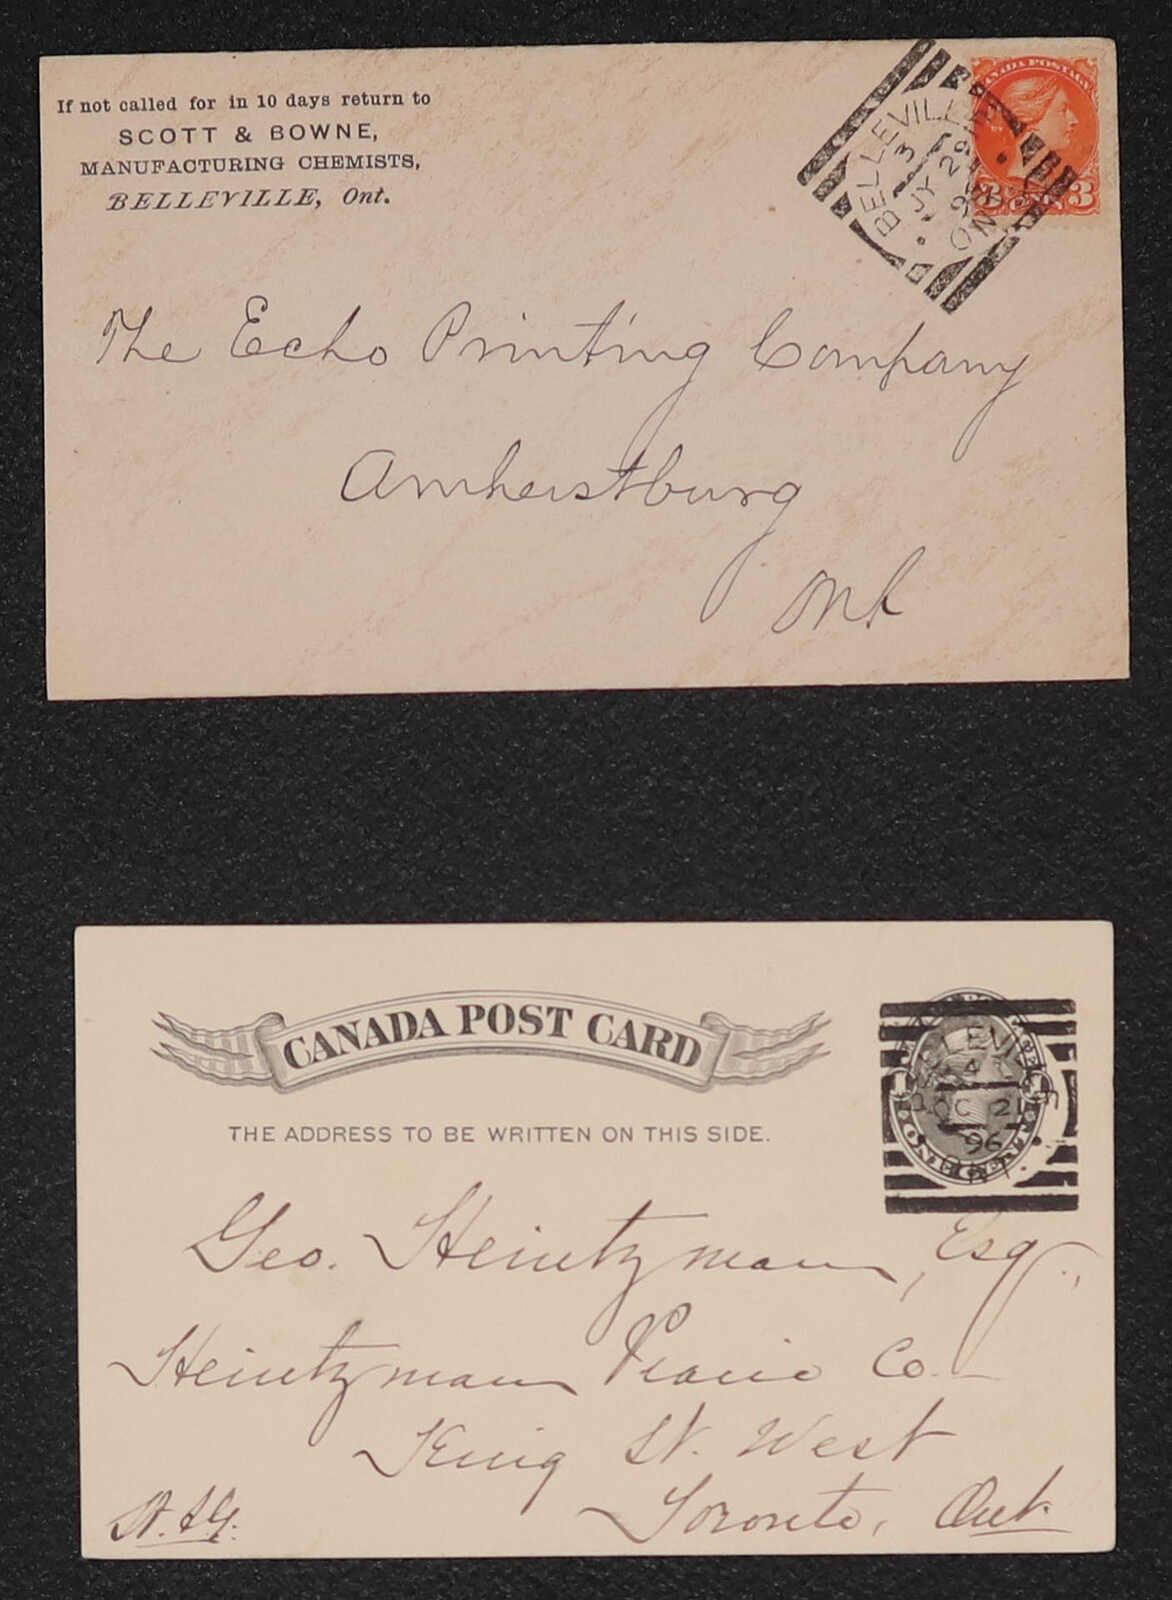 If not called for in 10 days return to
SCOTT & BOWNE,
MANUFACTURING CHEMISTS,
BELLEVILLE, Ont.
CANADA POSTAGE
3 3
BELLEVILLE
3
JY 29
ONT
The Echo Printing Company
Amherstburg
Ont
CANADA POST CARD
THE ADDRESS TO BE WRITTEN ON THIS SIDE.
BELLEVILLE
4
21
96
ONT.
Geo. Heintzman, Esq.,
Heintzman Piano Co
King St. West
Toronto, Ont.